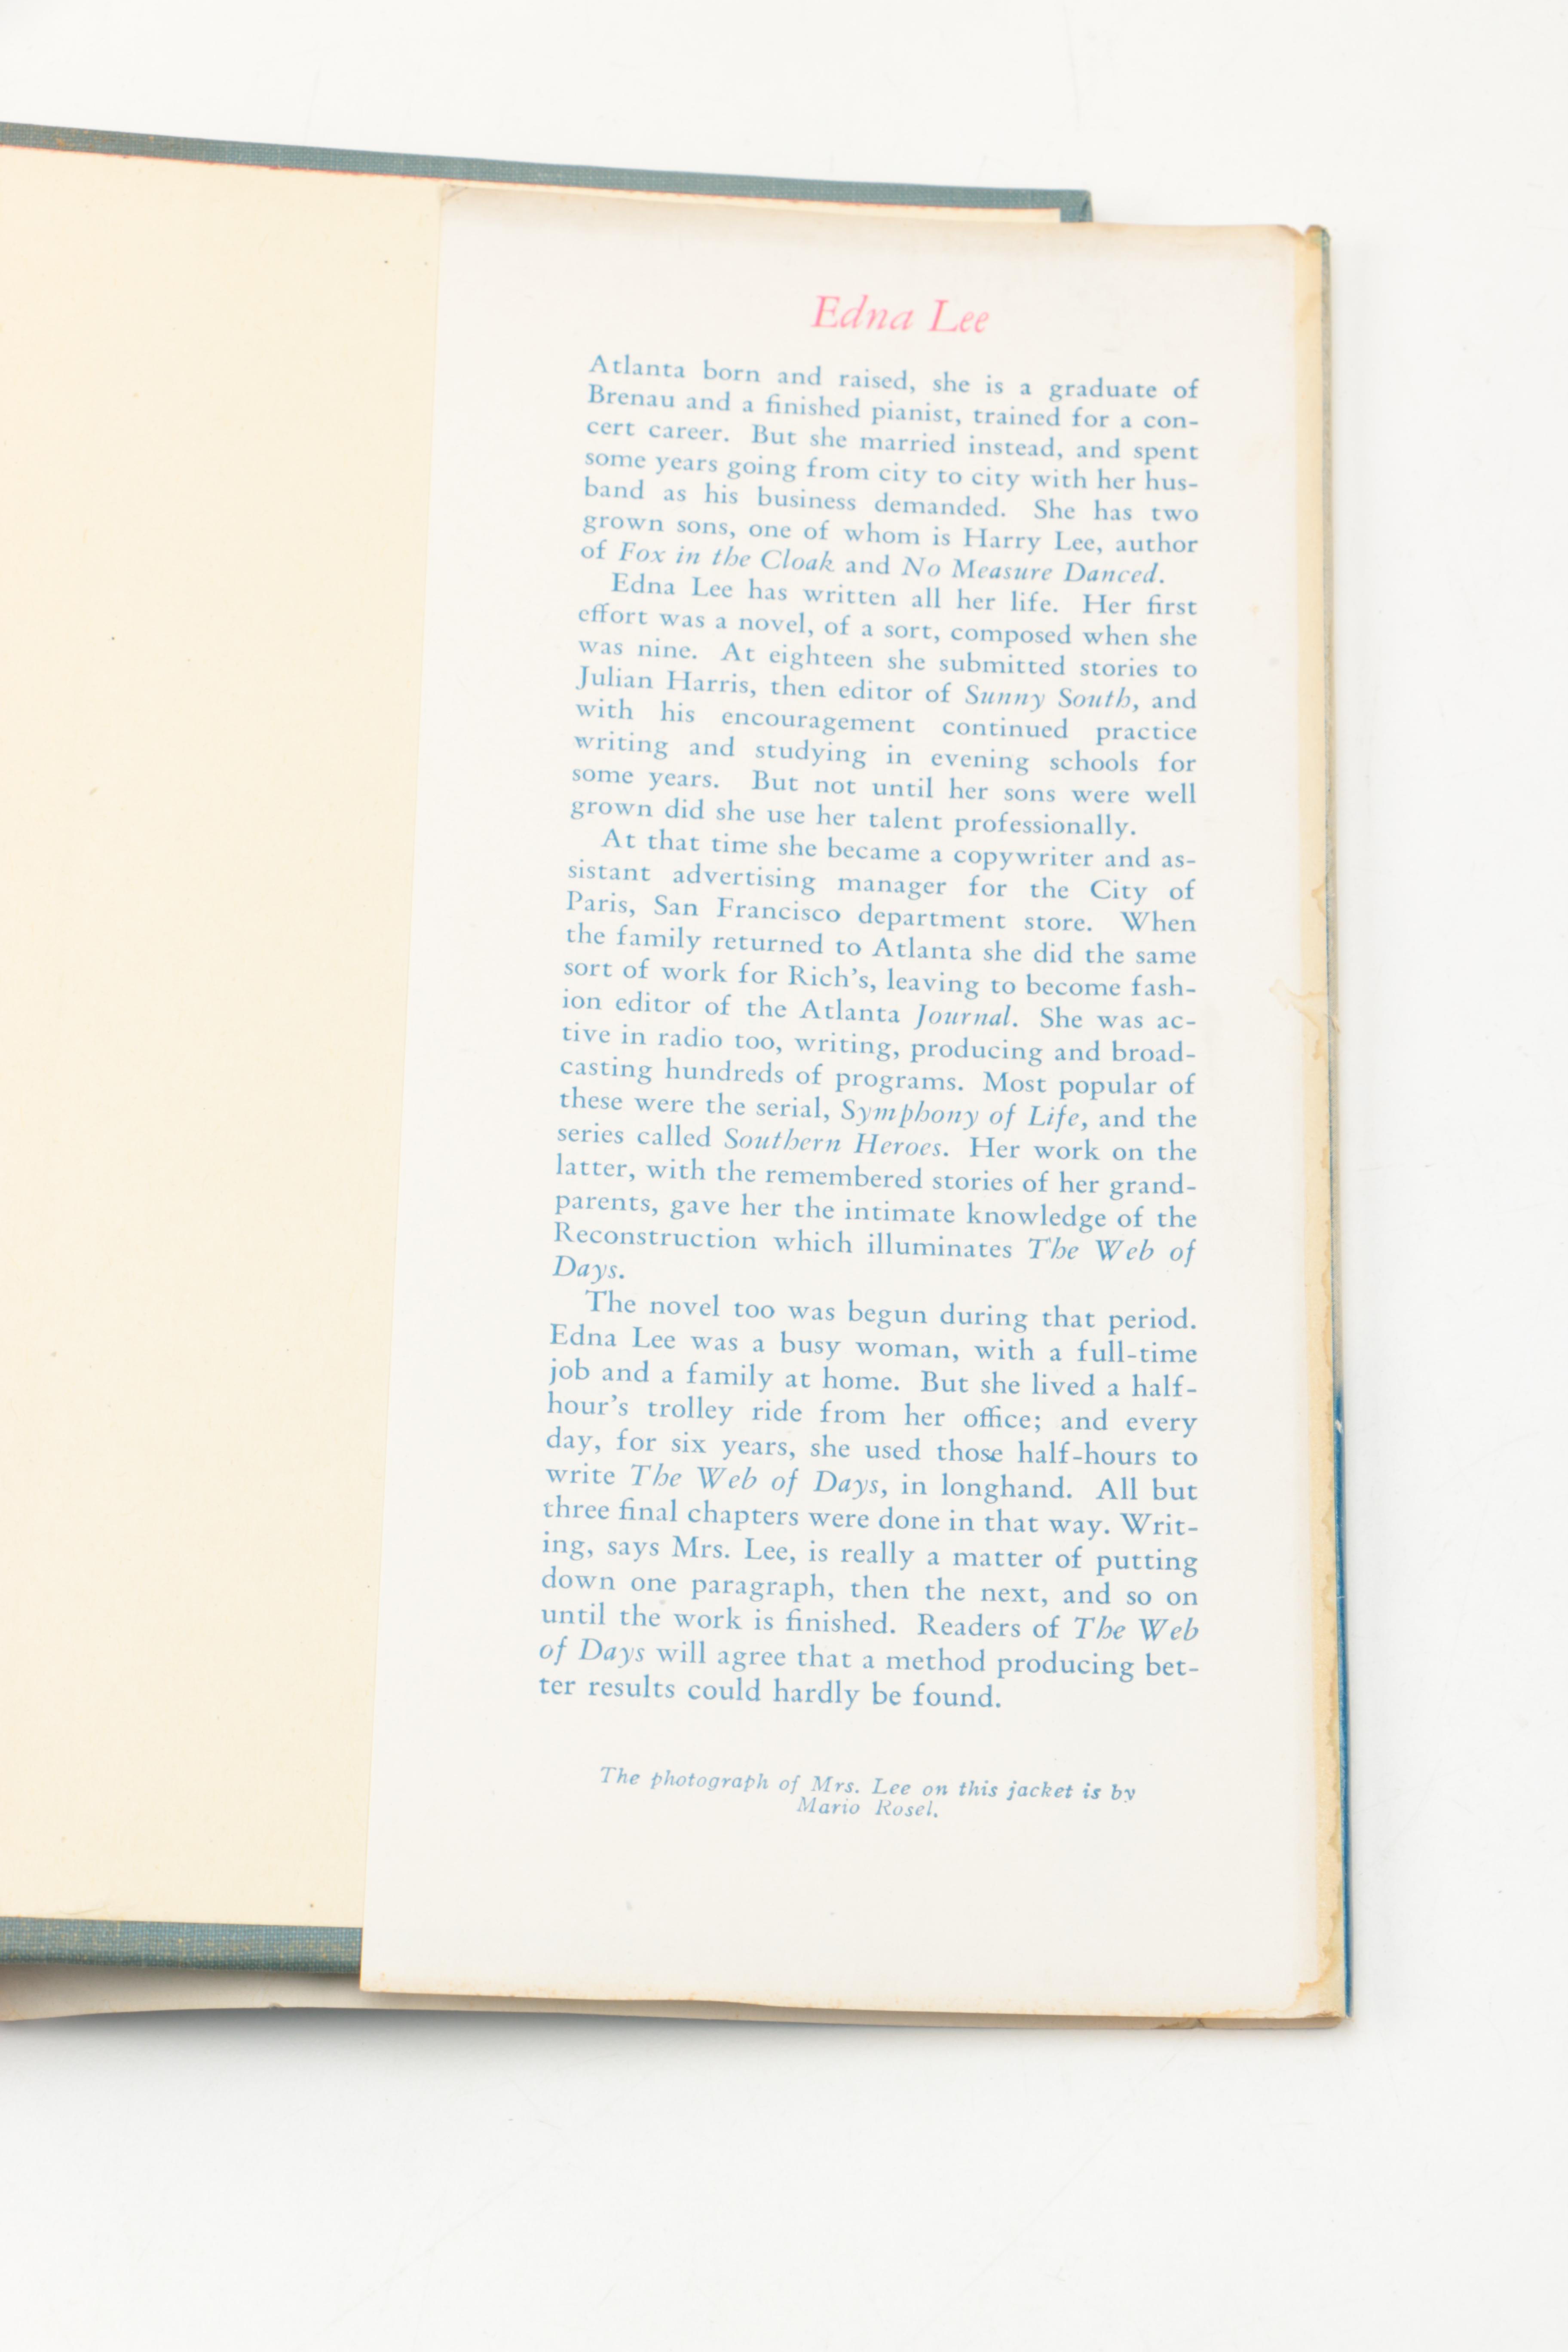 Edna Lee
Atlanta born and raised, she is a graduate of
Brenau and a finished pianist, trained for a con-
cert career. But she married instead, and spent
some years going from city to city with her hus-
band as his business demanded. She has two
grown sons, one of whom is Harry Lee, author
of Fox in the Cloak and No Measure Danced.
Edna Lee has written all her life. Her first
effort was a novel, of a sort, composed when she
was nine. At eighteen she submitted stories to
Julian Harris, then editor of Sunny South, and
with his encouragement continued practice
writing and studying in evening schools for
some years. But not until her sons were well
grown did she use her talent professionally.
At that time she became a copywriter and as-
sistant advertising manager for the City of
Paris, San Francisco department store. When
the family returned to Atlanta she did the same
sort of work for Rich's, leaving to become fash-
ion editor of the Atlanta Journal. She was ac-
tive in radio too, writing, producing and broad-
casting hundreds of programs. Most popular of
these were the serial, Symphony of Life, and the
series called Southern Heroes. Her work on the
latter, with the remembered stories of her grand-
parents, gave her the intimate knowledge of the
Reconstruction which illuminates The Web of
Days.
The novel too was begun during that period.
Edna Lee was a busy woman, with a full-time
job and a family at home. But she lived a half-
hour's trolley ride from her office; and every
day, for six years, she used those half-hours to
write The Web of Days, in longhand. All but
three final chapters were done in that way. Writ-
ing, says Mrs. Lee, is really a matter of putting
down one paragraph, then the next, and so on
until the work is finished. Readers of The Web
of Days will agree that a method producing bet-
ter results could hardly be found.
The photograph of Mrs. Lee on this jacket is by
Mario Rosel.